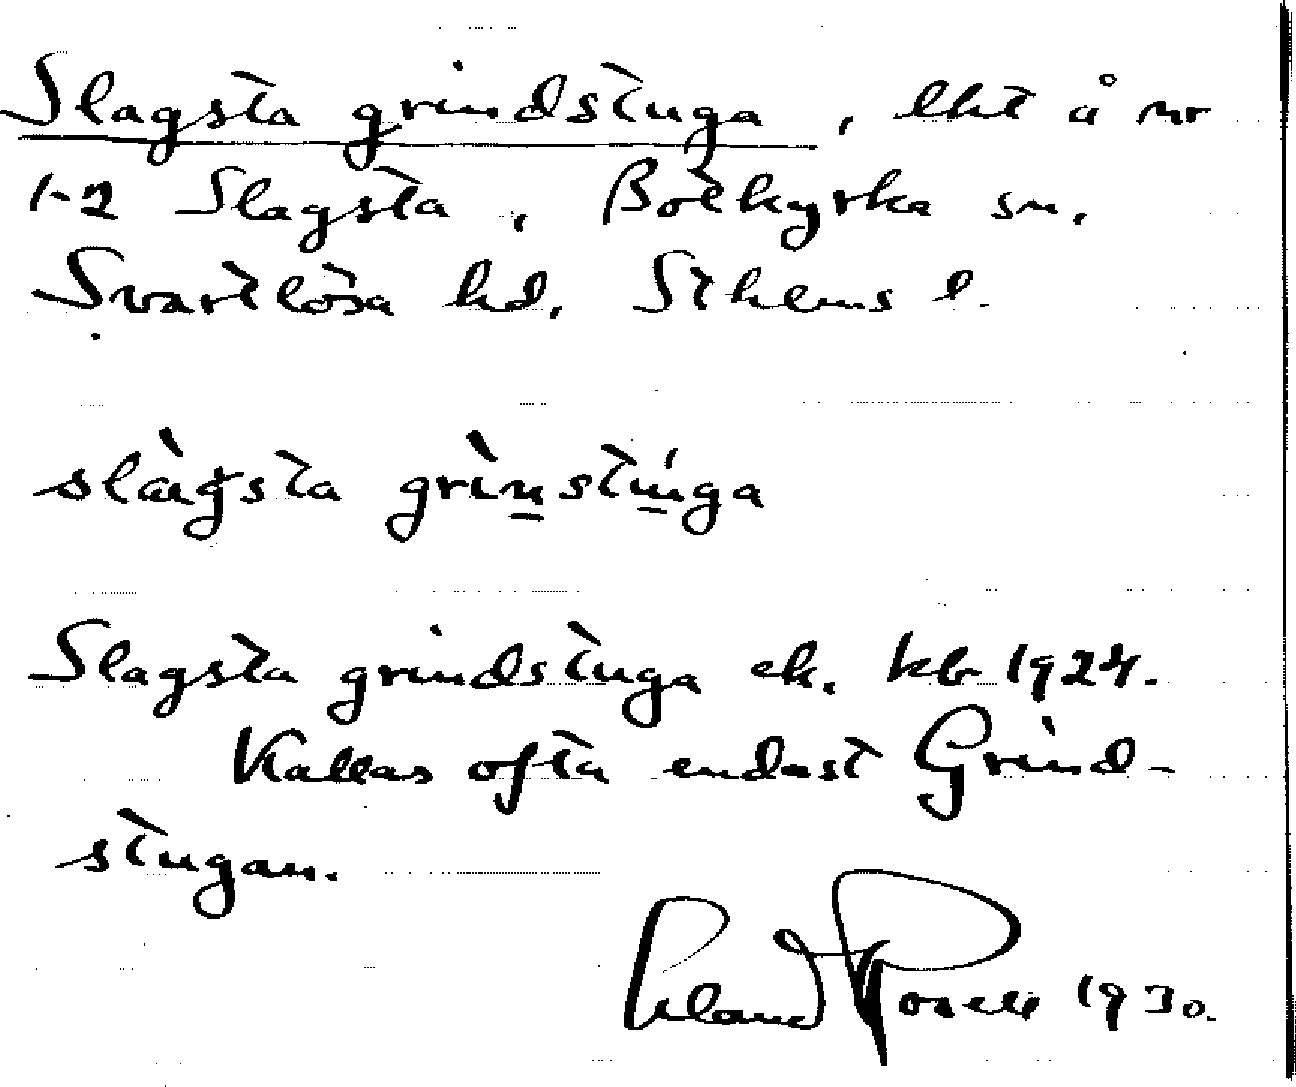 Slagsta grindstuga, lht å nr
1-2 Slagsta, Botkyrka sn,
Svartlösa hd, Sthlms l.
slàgsta grìnstúga
Slagsta grindstuga ek. kb 1924.
Kallas ofta endast Grind-
stugan.
1930.